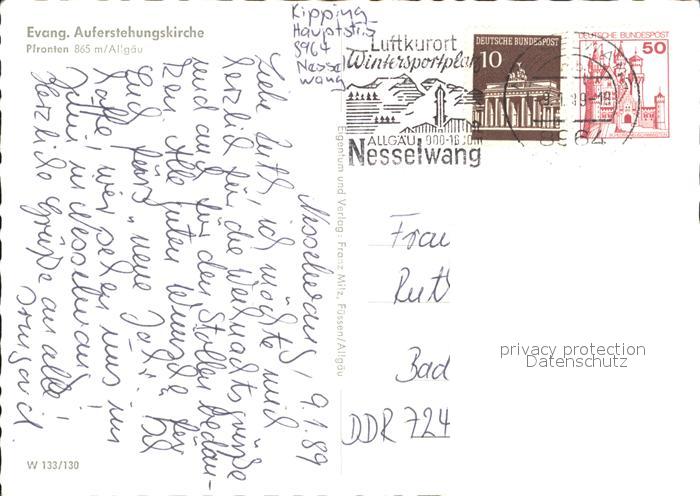 Evang. Auferstehungskirche
Pfronten 865 m/Allgäu
Kipping
Hauptstr.
8964
Nessel
wang
Luftkurort
Wintersportplatz
ALLGÄU 900-16 m
Nesselwang
DEUTSCHE BUNDESPOST
10
DEUTSCHE BUNDESPOST
50
8964
Nesselwang, 9.1.89
Liebe Ruth, ich möchte mich
herzlich für die Weihnachtsgrüße
und auch für den Stollen bedan-
ken. Alle guten Wünsche
Euch fürs "neue Jahr".
wir sehen uns im
Juni in Nesselwang!
Herzliche Grüße an alle!
Irmgard.
Eigentum und Verlag: Franz Milz, Füssen/Allgäu
Frau
Ruth
Bad
DDR 724
privacy protection
Datenschutz
W 133/130